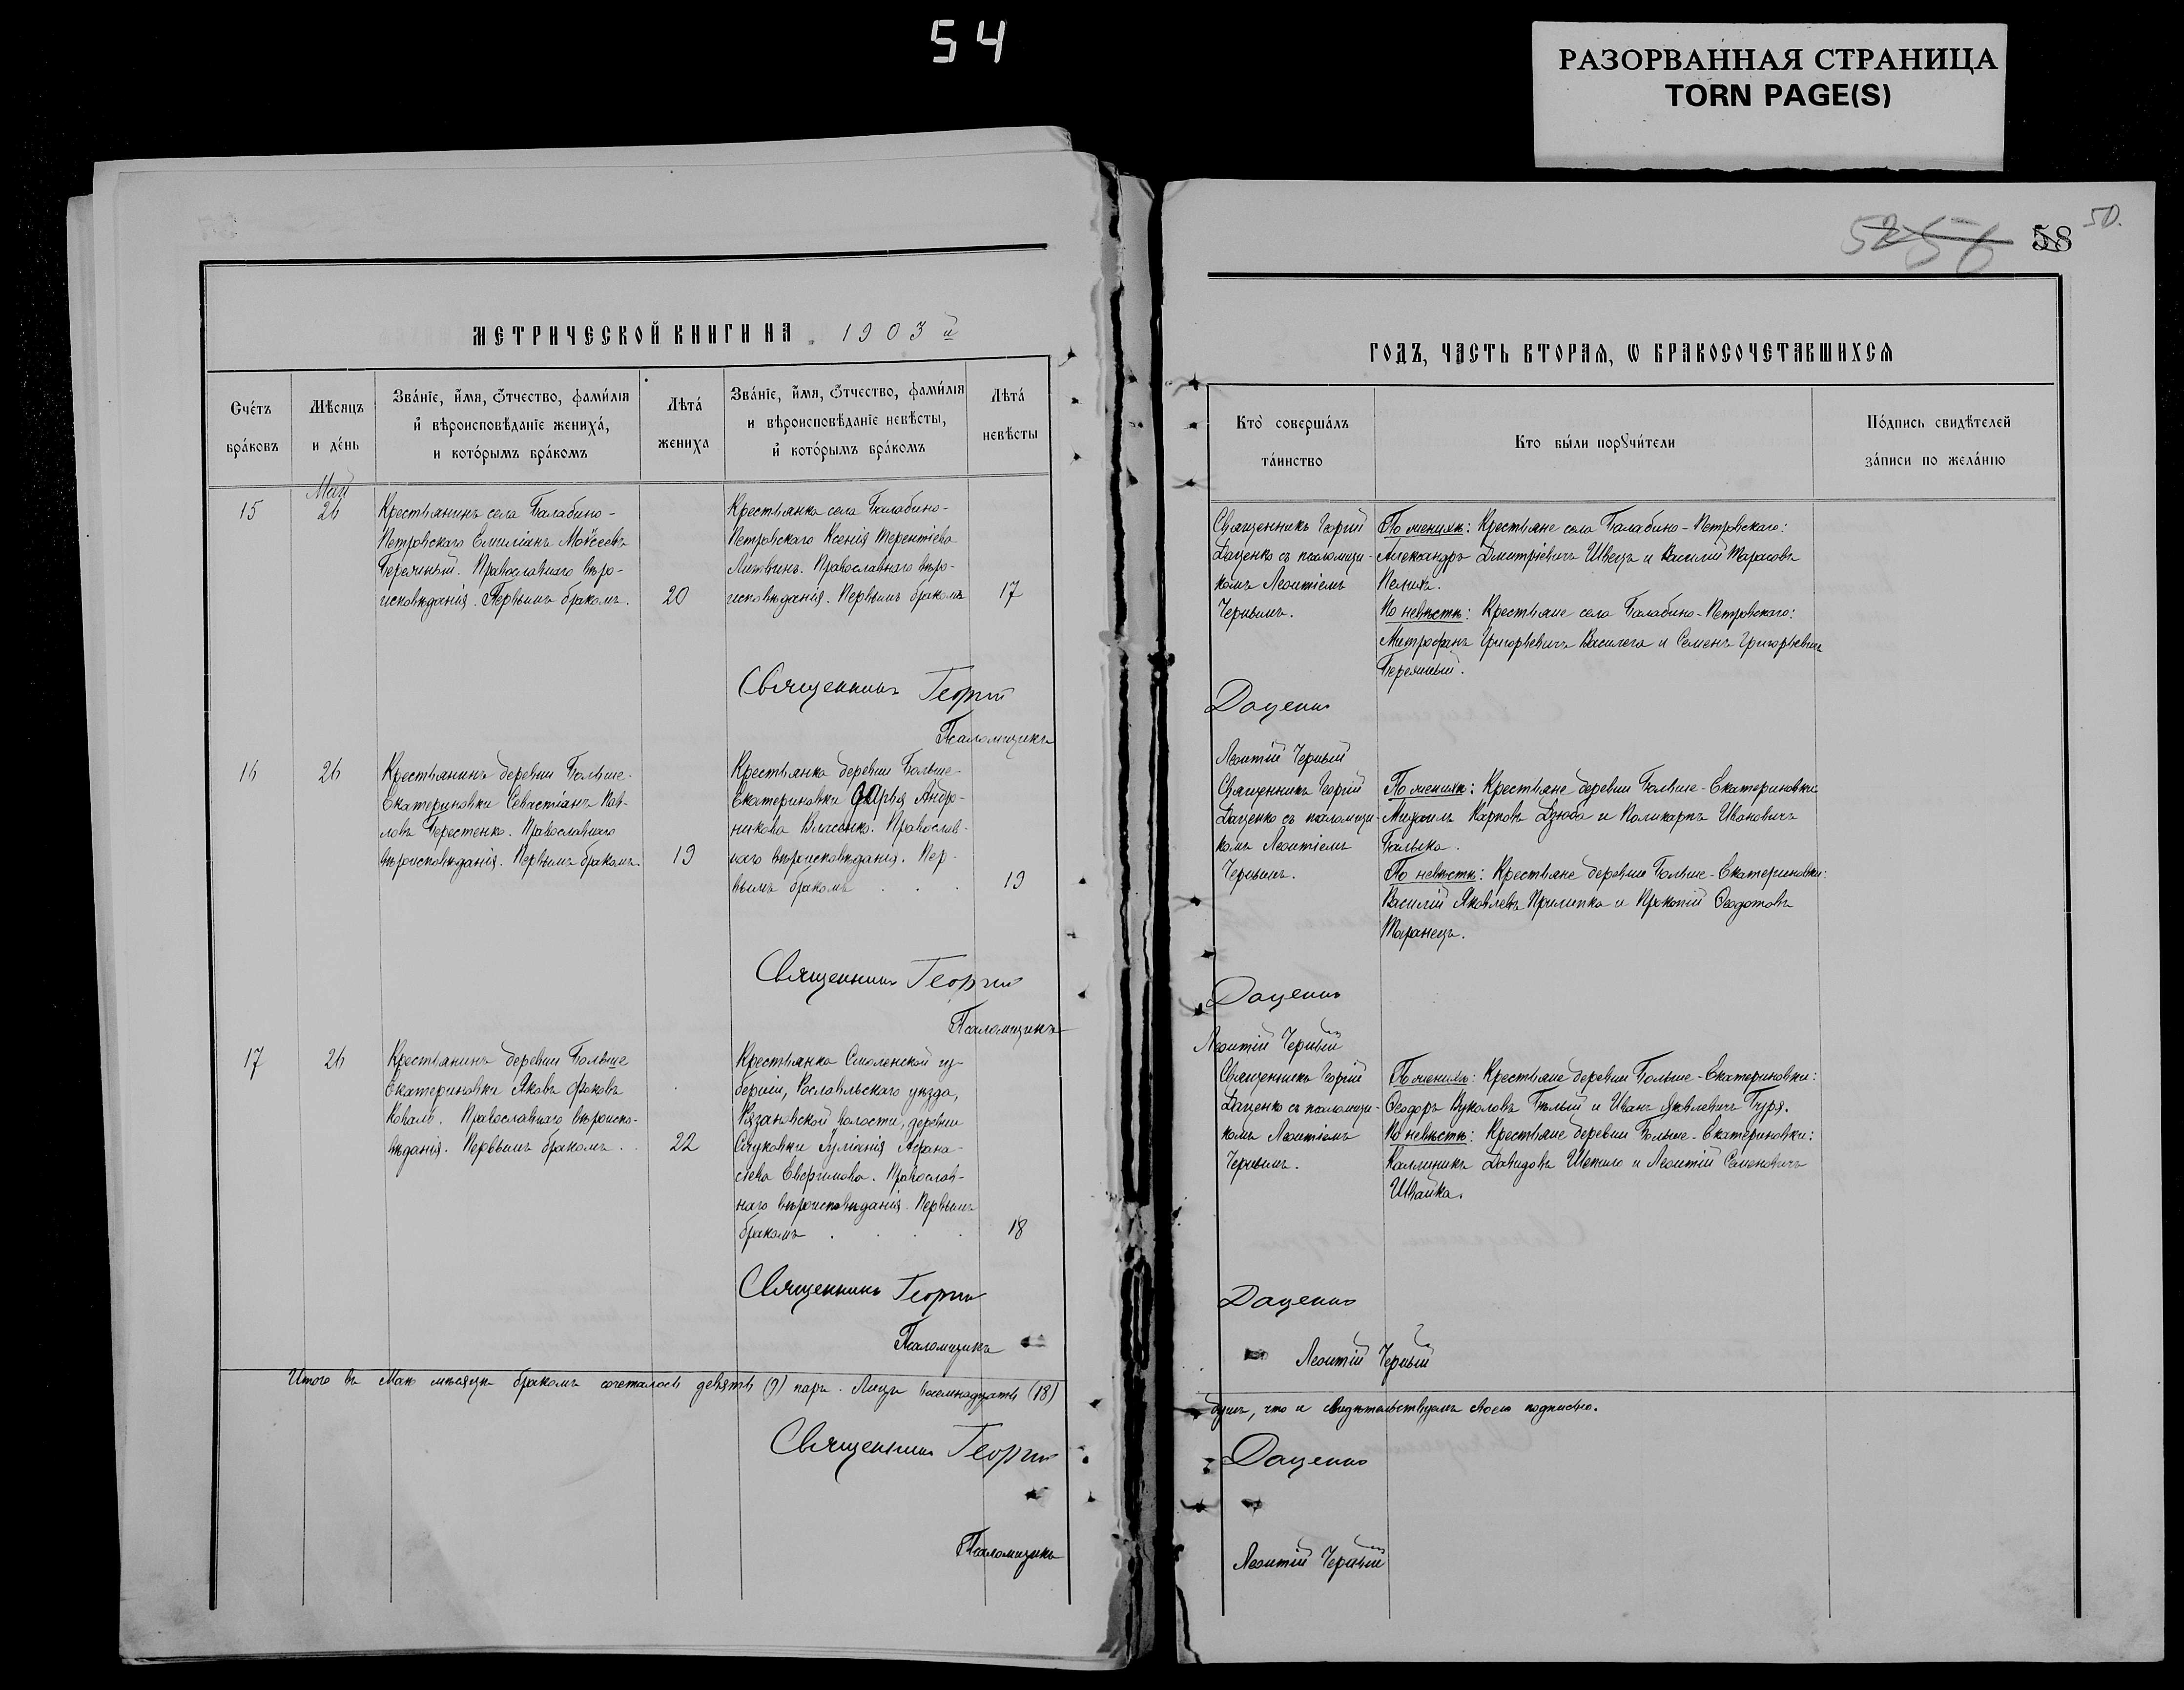 54
РАЗОРВАННАЯ СТРАНИЦА
TORN PAGE(S)
МЕТРИЧЕСКОЙ КНИГИ НА 1903 й
Счетъ браковъ
Мѣсяцъ и день
Званіе, имя, отчество, фамилія
и вѣроисповѣданіе жениха,
и которымъ бракомъ
Лѣта жениха
Званіе, имя, отчество, фамилія
и вѣроисповѣданіе невѣсты,
и которымъ бракомъ
Лѣта невѣсты
Май
15
26
Крестьянинъ села Балабино-
Петровскаго Емиліанъ Моѵсеевъ
Берегиный. Православнаго вѣро-
исповѣданія. Первымъ бракомъ.
20
Крестьянка села Балабино-
Петровскаго Ксенія Терентіева
Литвинъ. Православнаго вѣро-
исповѣданія. Первымъ бракомъ
17
Священникъ Георгій
Псаломщикъ
16
26
Крестьянинъ деревни Больше-
Екатериновки Севастіанъ Пав-
ловъ Берестенко. Православнаго
вѣроисповѣданія. Первымъ бракомъ.
19
Крестьянка деревни Больше-
Екатериновки Дарья Андро-
никова Власенко. Православ-
наго вѣроисповѣданія. Пер-
вымъ бракомъ . . .
19
Священникъ Георгій
Псаломщикъ
17
26
Крестьянинъ деревни Больше
Екатериновки Яковъ Фоковъ
Коваль. Православнаго вѣроиспо-
вѣданія. Первымъ бракомъ. .
22
Крестьянка Смоленской гу-
берніи, Рославльскаго уѣзда,
Рязановской волости, деревни
Іуліанія Афана-
сіева Евфимова. Православ-
наго вѣроисповѣданія. Первымъ
бракомъ . . . .
18
Священникъ Георгій
Псаломщикъ
Итого въ Маѣ мѣсяцѣ бракомъ сочеталось девять (9) паръ. Лицъ восемнадцать (18)
Священникъ Георгій
Псаломщикъ
52 56 58 50.
ГОДЪ, ЧАСТЬ ВТОРАЯ, Ѡ БРАКОСОЧЕТАВШИХСЯ
Кто совершалъ
таинство
Кто были поручители
Подпись свидѣтелей
записи по желанію
Священникъ Георгій
Даценко съ псаломщи-
комъ Леонтіемъ
Чернымъ.
По женихѣ: Крестьяне села Балабино-Петровскаго:
Александръ Димитріевичъ Швецъ и Василій Тарасовъ
По невѣстѣ: Крестьяне села Балабино-Петровскаго:
Митрофанъ Григорьевичъ Василега и Семенъ Григорьевичъ
Даценко
Леонтій Черный
Священникъ Георгій
Даценко съ псаломщи-
комъ Леонтіемъ
Чернымъ.
По женихѣ: Крестьяне деревни Больше-Екатериновки
Михаилъ Карповъ Дзюба и Поликарпъ Ивановичъ
По невѣстѣ: Крестьяне деревни Больше-Екатериновки:
Василій Яковлевъ Прилипка и Прокопій Ѳеодотовъ
Таранецъ.
Даценко
Леонтій Черный
Священникъ Георгій
Даценко съ псаломщи-
комъ Леонтіемъ
Чернымъ.
По женихѣ: Крестьяне деревни Больше-Екатериновки:
Ѳеодоръ Вуколовъ Бѣлый и Иванъ Яковлевичъ Буря.
По невѣстѣ: Крестьяне деревни Больше-Екатериновки:
Каллиникъ Давидовъ Шетило и Леонтій Семеновичъ
Швайка.
Даценко
Леонтій Черный
душъ, что и свидѣтельствуемъ своею подписью.
Даценко
Леонтій Черный